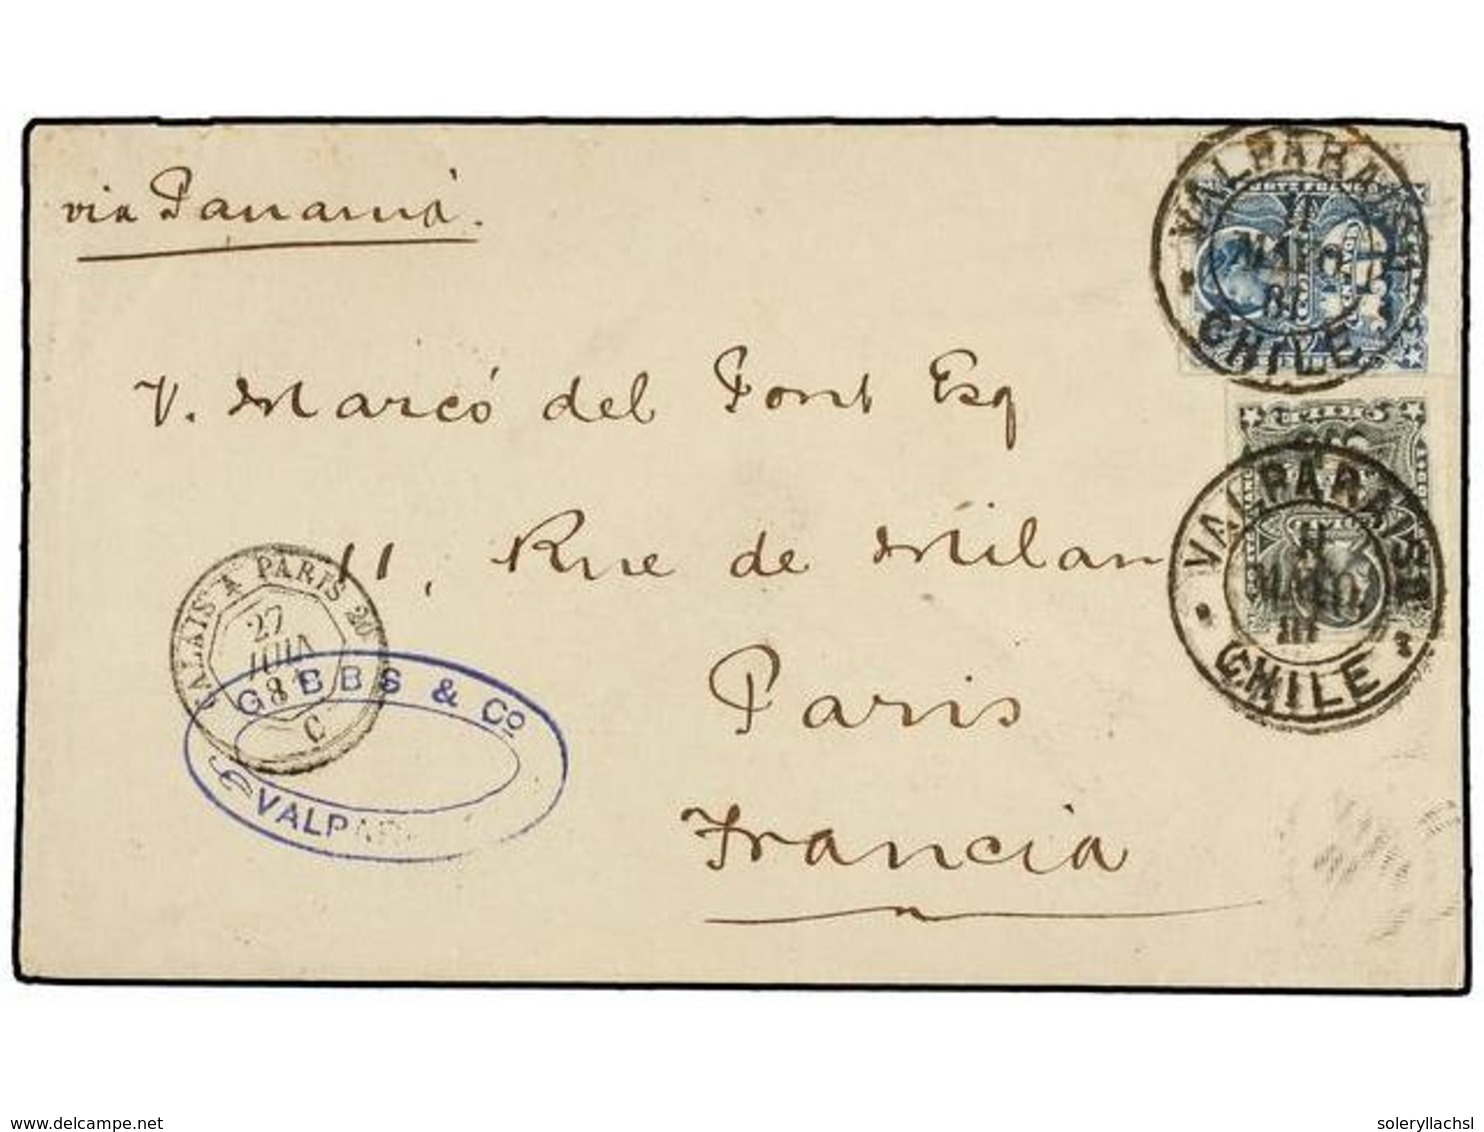 via Panamá.
V. Marcó del Pont Esq
11, Rue de Milan
Paris
Francia
VALPARAISO
11
MAIO
81
CHILE
VALPARAISO
MAIO
81
CHILE
CALAIS A PARIS 20
27
JUIN
81
C
GIBBS & Co
VALPAR
delcampe.net
soleryllachsl